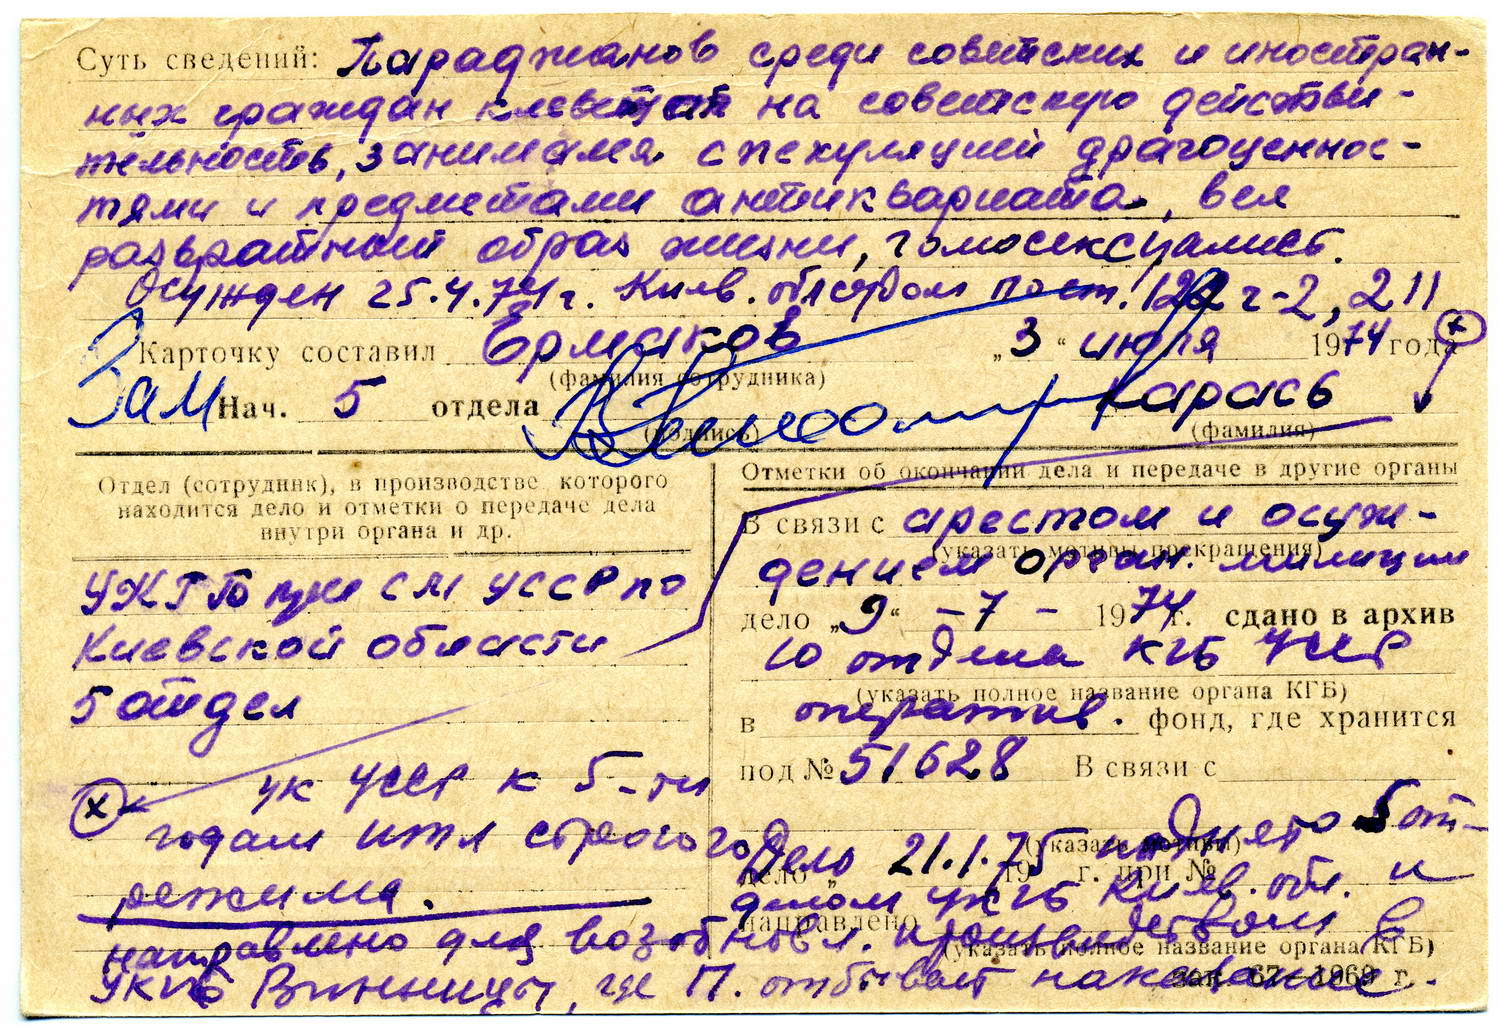 Суть сведений: Параджанов среди советских и иностран-
ных граждан клевещет на советскую действи-
тельность, занимался спекуляцией драгоценнос-
тями и предметами антиквариата, вел
развратный образ жизни, гомосексуалист.
Осужден 25.4.74 г. Киев. облсудом по ст. 122 ч-2, 211
Карточку составил Ермаков „3“ июля 1974 года
(фамилия сотрудника)
Зам Нач. 5 отдела Карась
(подпись) (фамилия)
Отдел (сотрудник), в производстве которого
находится дело и отметки о передаче дела
внутри органа и др.
УКГБ при СМ УССР по
Киевской области
5 отдел
х УК УССР к 5-ти
годам ИТЛ строгого
режима.
Отметки об окончании дела и передаче в другие органы
В связи с арестом и осуж-
(указать мотивы прекращения)
дением орган. милиции
дело „9“ -7- 1974 г. сдано в архив
10 отдела КГБ УССР
(указать полное название органа КГБ)
в оператив. фонд, где хранится
под № 51628 В связи с
(указать мотивы)
дело „ 19 г. при №
направлено
(указать полное название органа КГБ)
Дело 21.1.75 поднято 5 от-
делом УКГБ Киев. обл. и
направлено для возобновл. производством в
УКГБ Винницы, где П. отбывает наказание.
Зак. 67—1969 г.